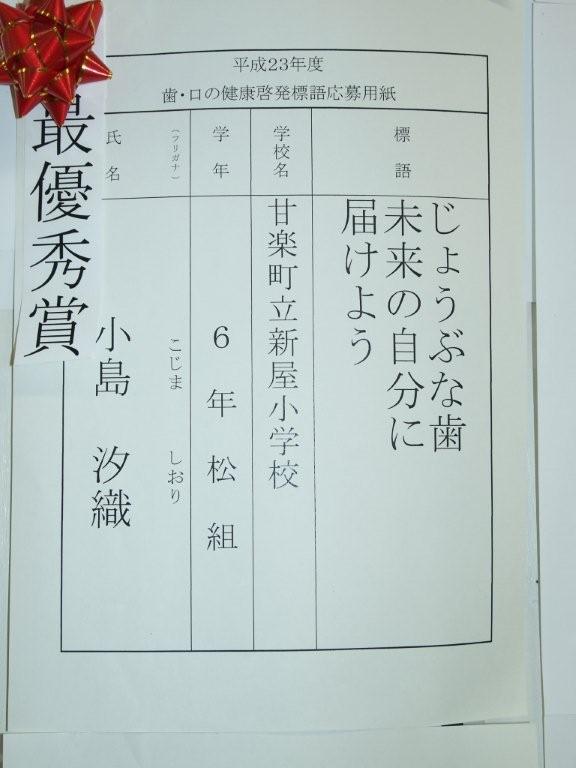 平成23年度
歯・口の健康啓発標語応募用紙
標語
じょうぶな歯
未来の自分に
届けよう
学校名
甘楽町立新屋小学校
学年
6年松組
(フリガナ)
こじま しおり
氏名
小島 汐織
最優秀賞